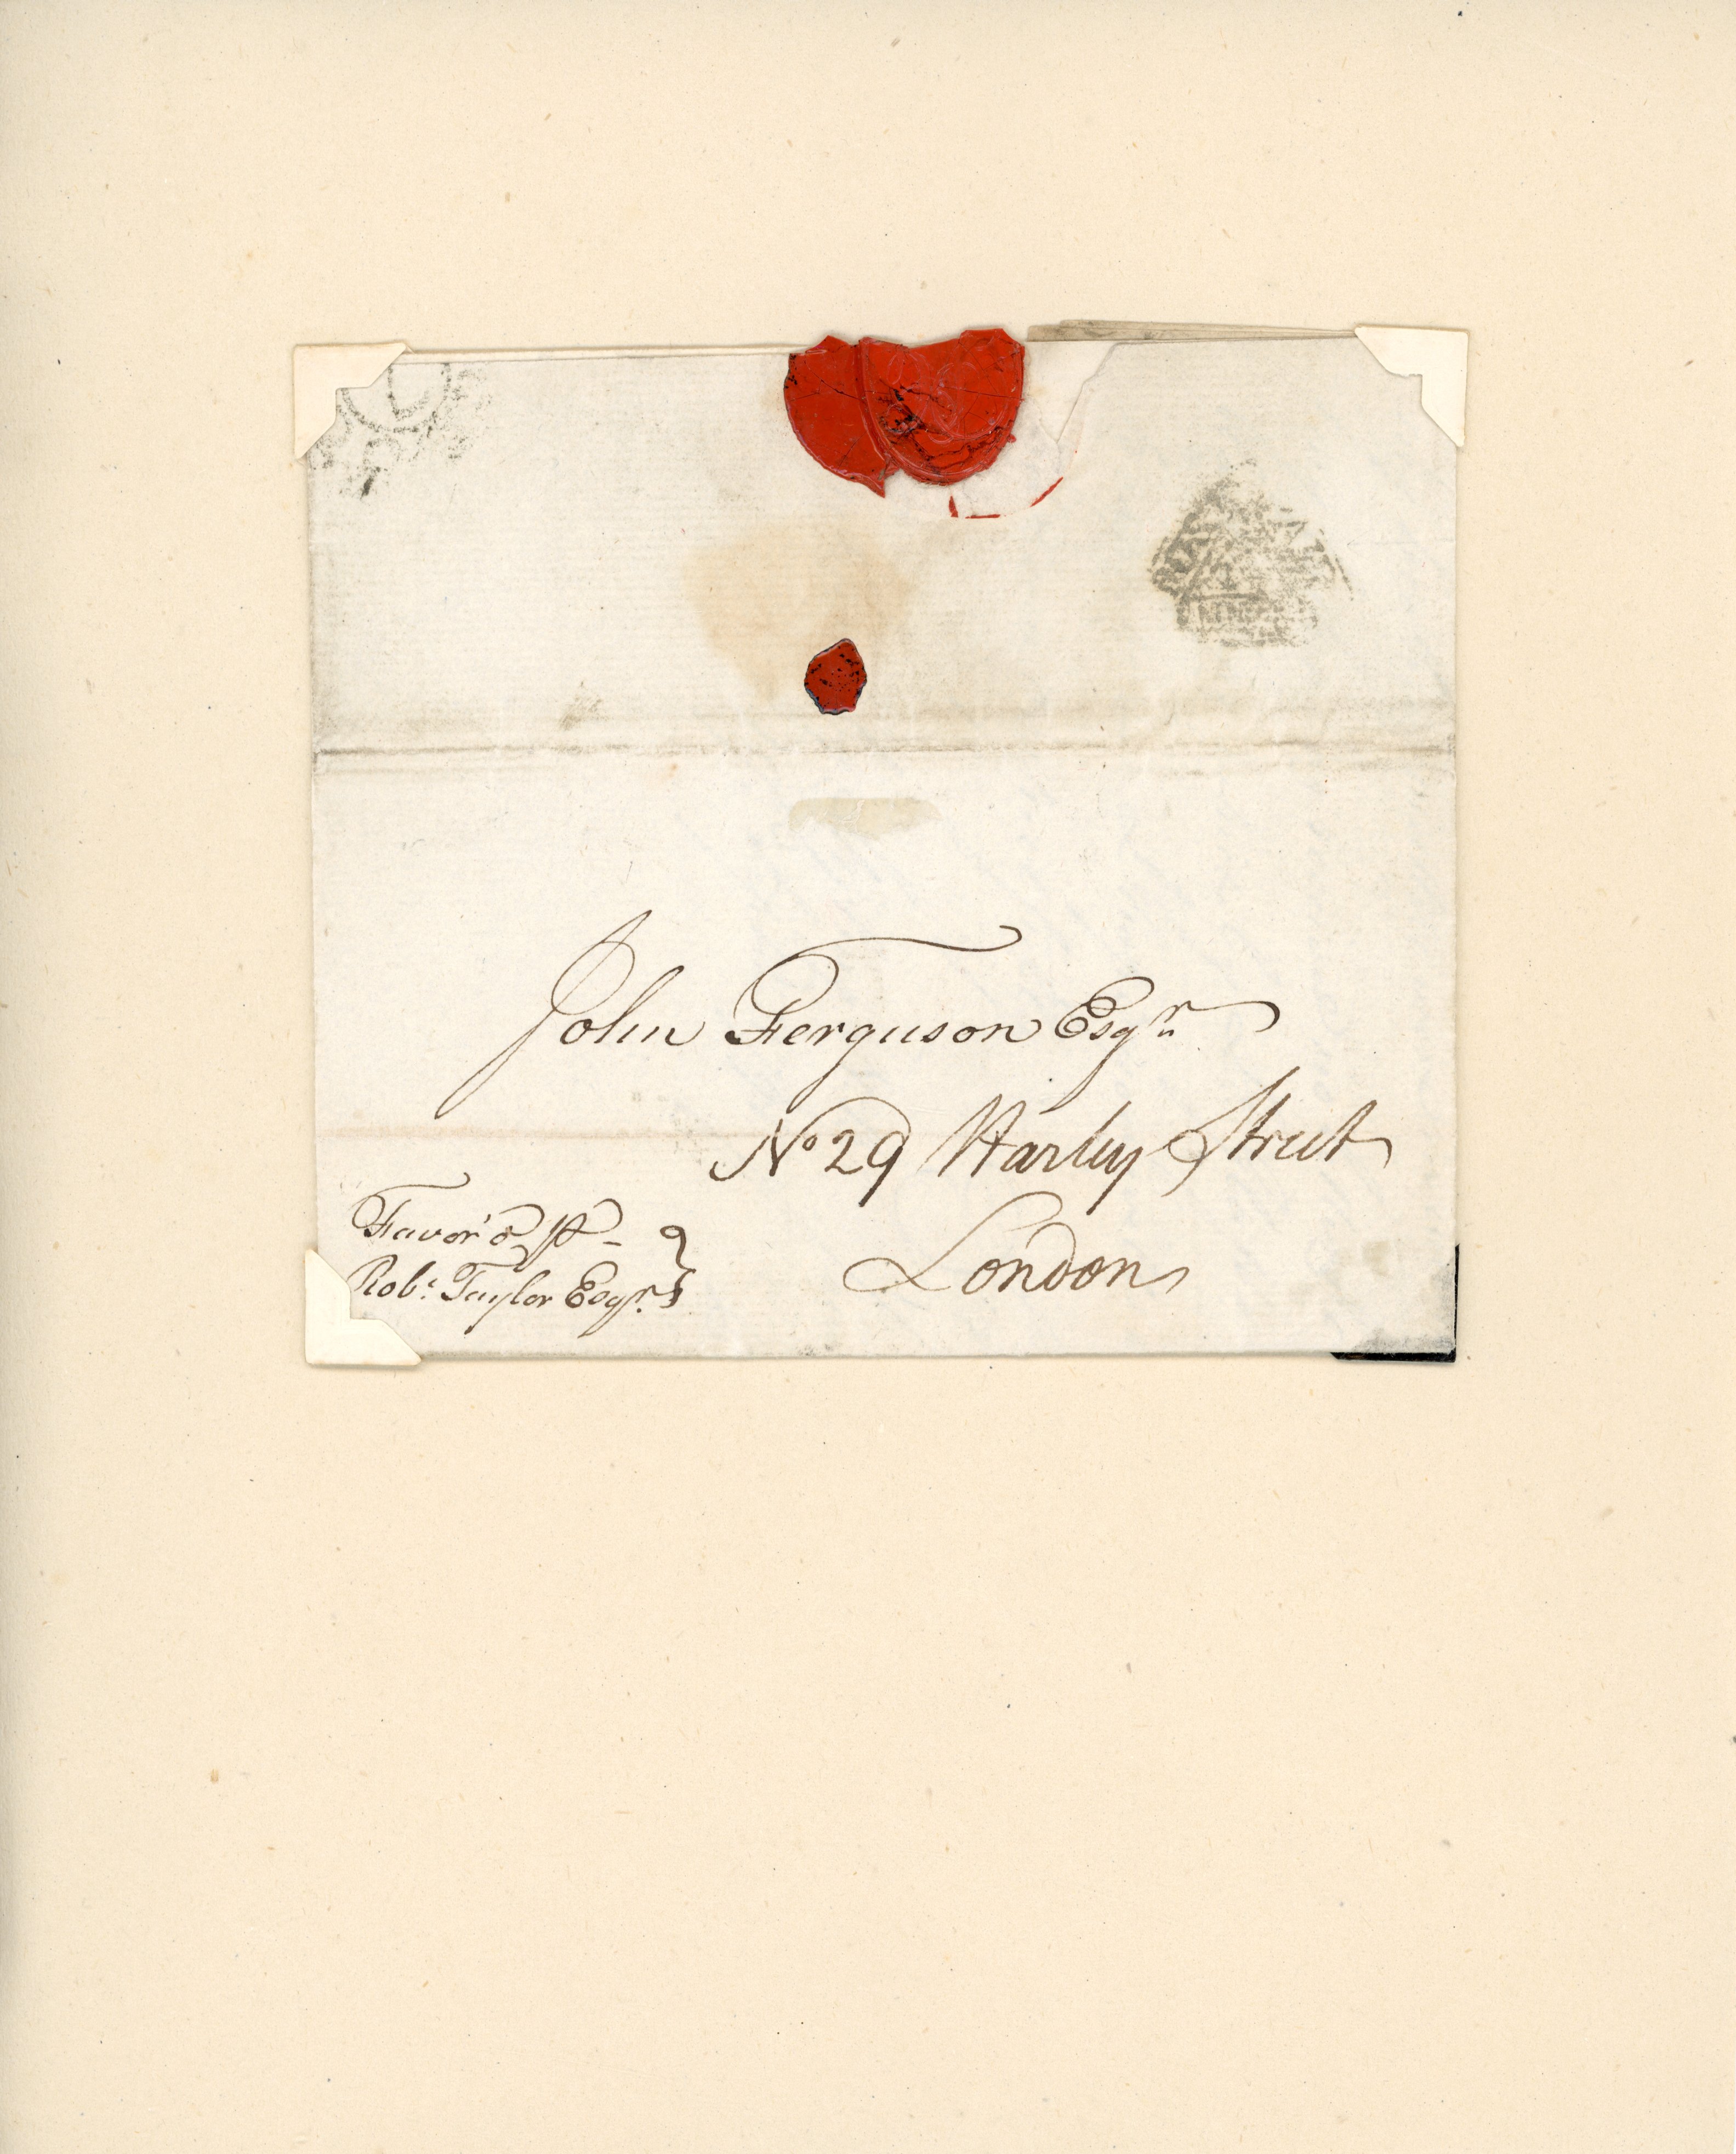 John Ferguson Esqr
No 29 Harley Street
London
Favor'd Pr
Robt Taylor Esqr